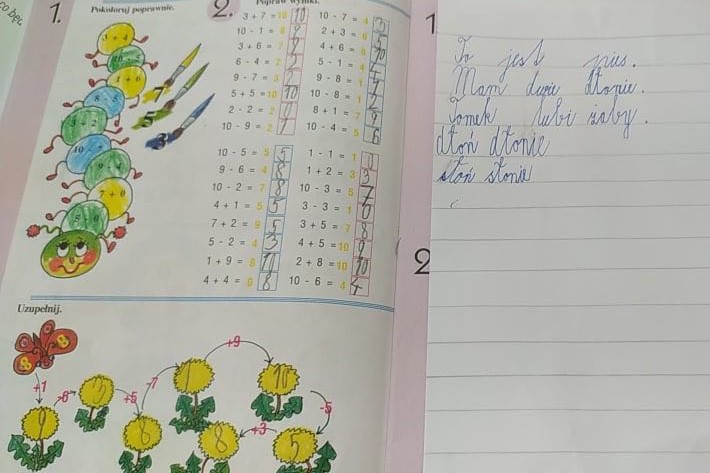 co będ
1. Pokoloruj poprawnie.
3 + 4
1 + 6
8 - 5
3 + 2
7 + 0
2. Popraw wyniki.
3 + 7 = 10 10
10 - 1 = 8 9
3 + 6 = 7 9
6 - 4 = 2
9 - 7 = 3 2
5 + 5 = 10 10
2 - 2 = 2
10 - 9 = 2 1
10 - 7 = 4 3
2 + 3 = 6 5
4 + 6 = 8 10
5 - 1 = 4
9 - 8 = 1
10 - 8 = 1 2
8 + 1 = 7 9
10 - 4 = 5 6
10 - 5 = 5 5
9 - 6 = 4
10 - 2 = 7 8
4 + 1 = 5 5
7 + 2 = 9
5 - 2 = 4 3
1 + 9 = 8
4 + 4 = 0 8
1 - 1 = 1 0
1 + 2 = 3 3
10 - 3 = 5 7
3 - 3 = 1 0
3 + 5 = 7 8
4 + 5 = 10 9
2 + 8 = 10 10
10 - 6 = 4 4
Uzupełnij.
8 8
+1 -6 +5 -7 +9 -5 +3
9 3 8 1 10 5 8
1
To jest pies.
Mam dwie dłonie.
Tomek lubi żaby.
dłoń dłonie
słoń słonie
2